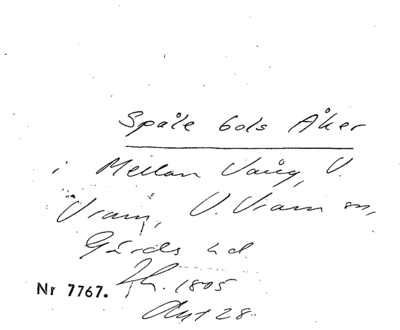 Spåle bols Åker
i Mellan Vång, V.
Vram, V. Vram sn,
Gärds hd
Nr 7767. 1805